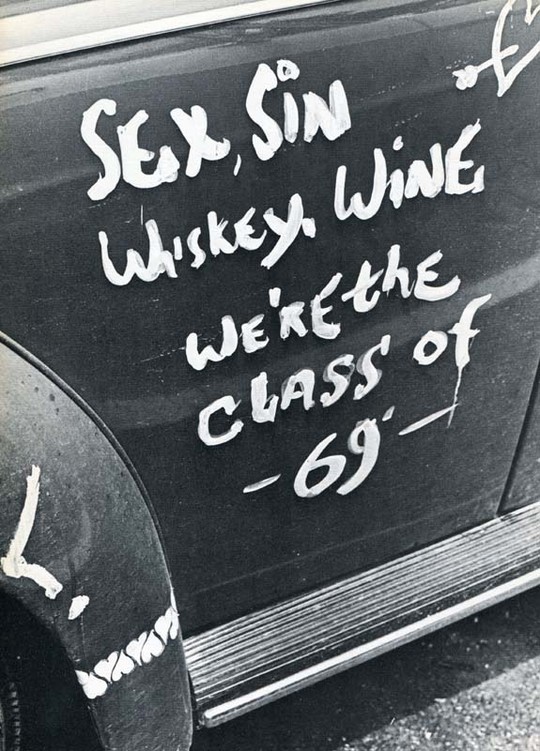 SEX, SiN
WhiSKEY, WiNE,
WE'RE the
CLASS of
-69'-